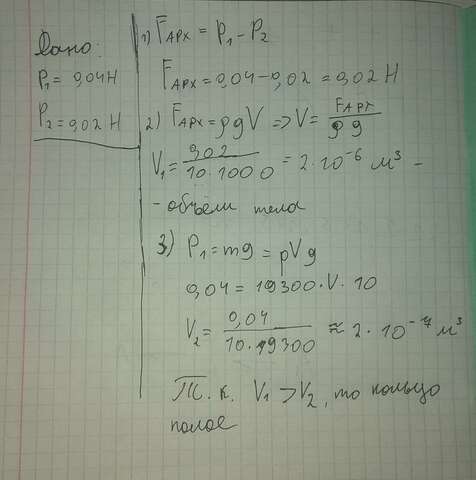 Дано:
P₁ = 0,04 Н
P₂ = 0,02 Н
1) Fарх = P₁ - P₂
Fарх = 0,04 - 0,02 = 0,02 Н
2) Fарх = ρgV => V = Fарх / ρg
V₁ = 0,02 / 10·1000 = 2·10⁻⁶ м³ -
- объём тела
3) P₁ = mg = ρVg
0,04 = 19300·V·10
V₂ = 0,04 / 10·19300 ≈ 2·10⁻⁷ м³
Т. к. V₁ > V₂, то кольцо
полое